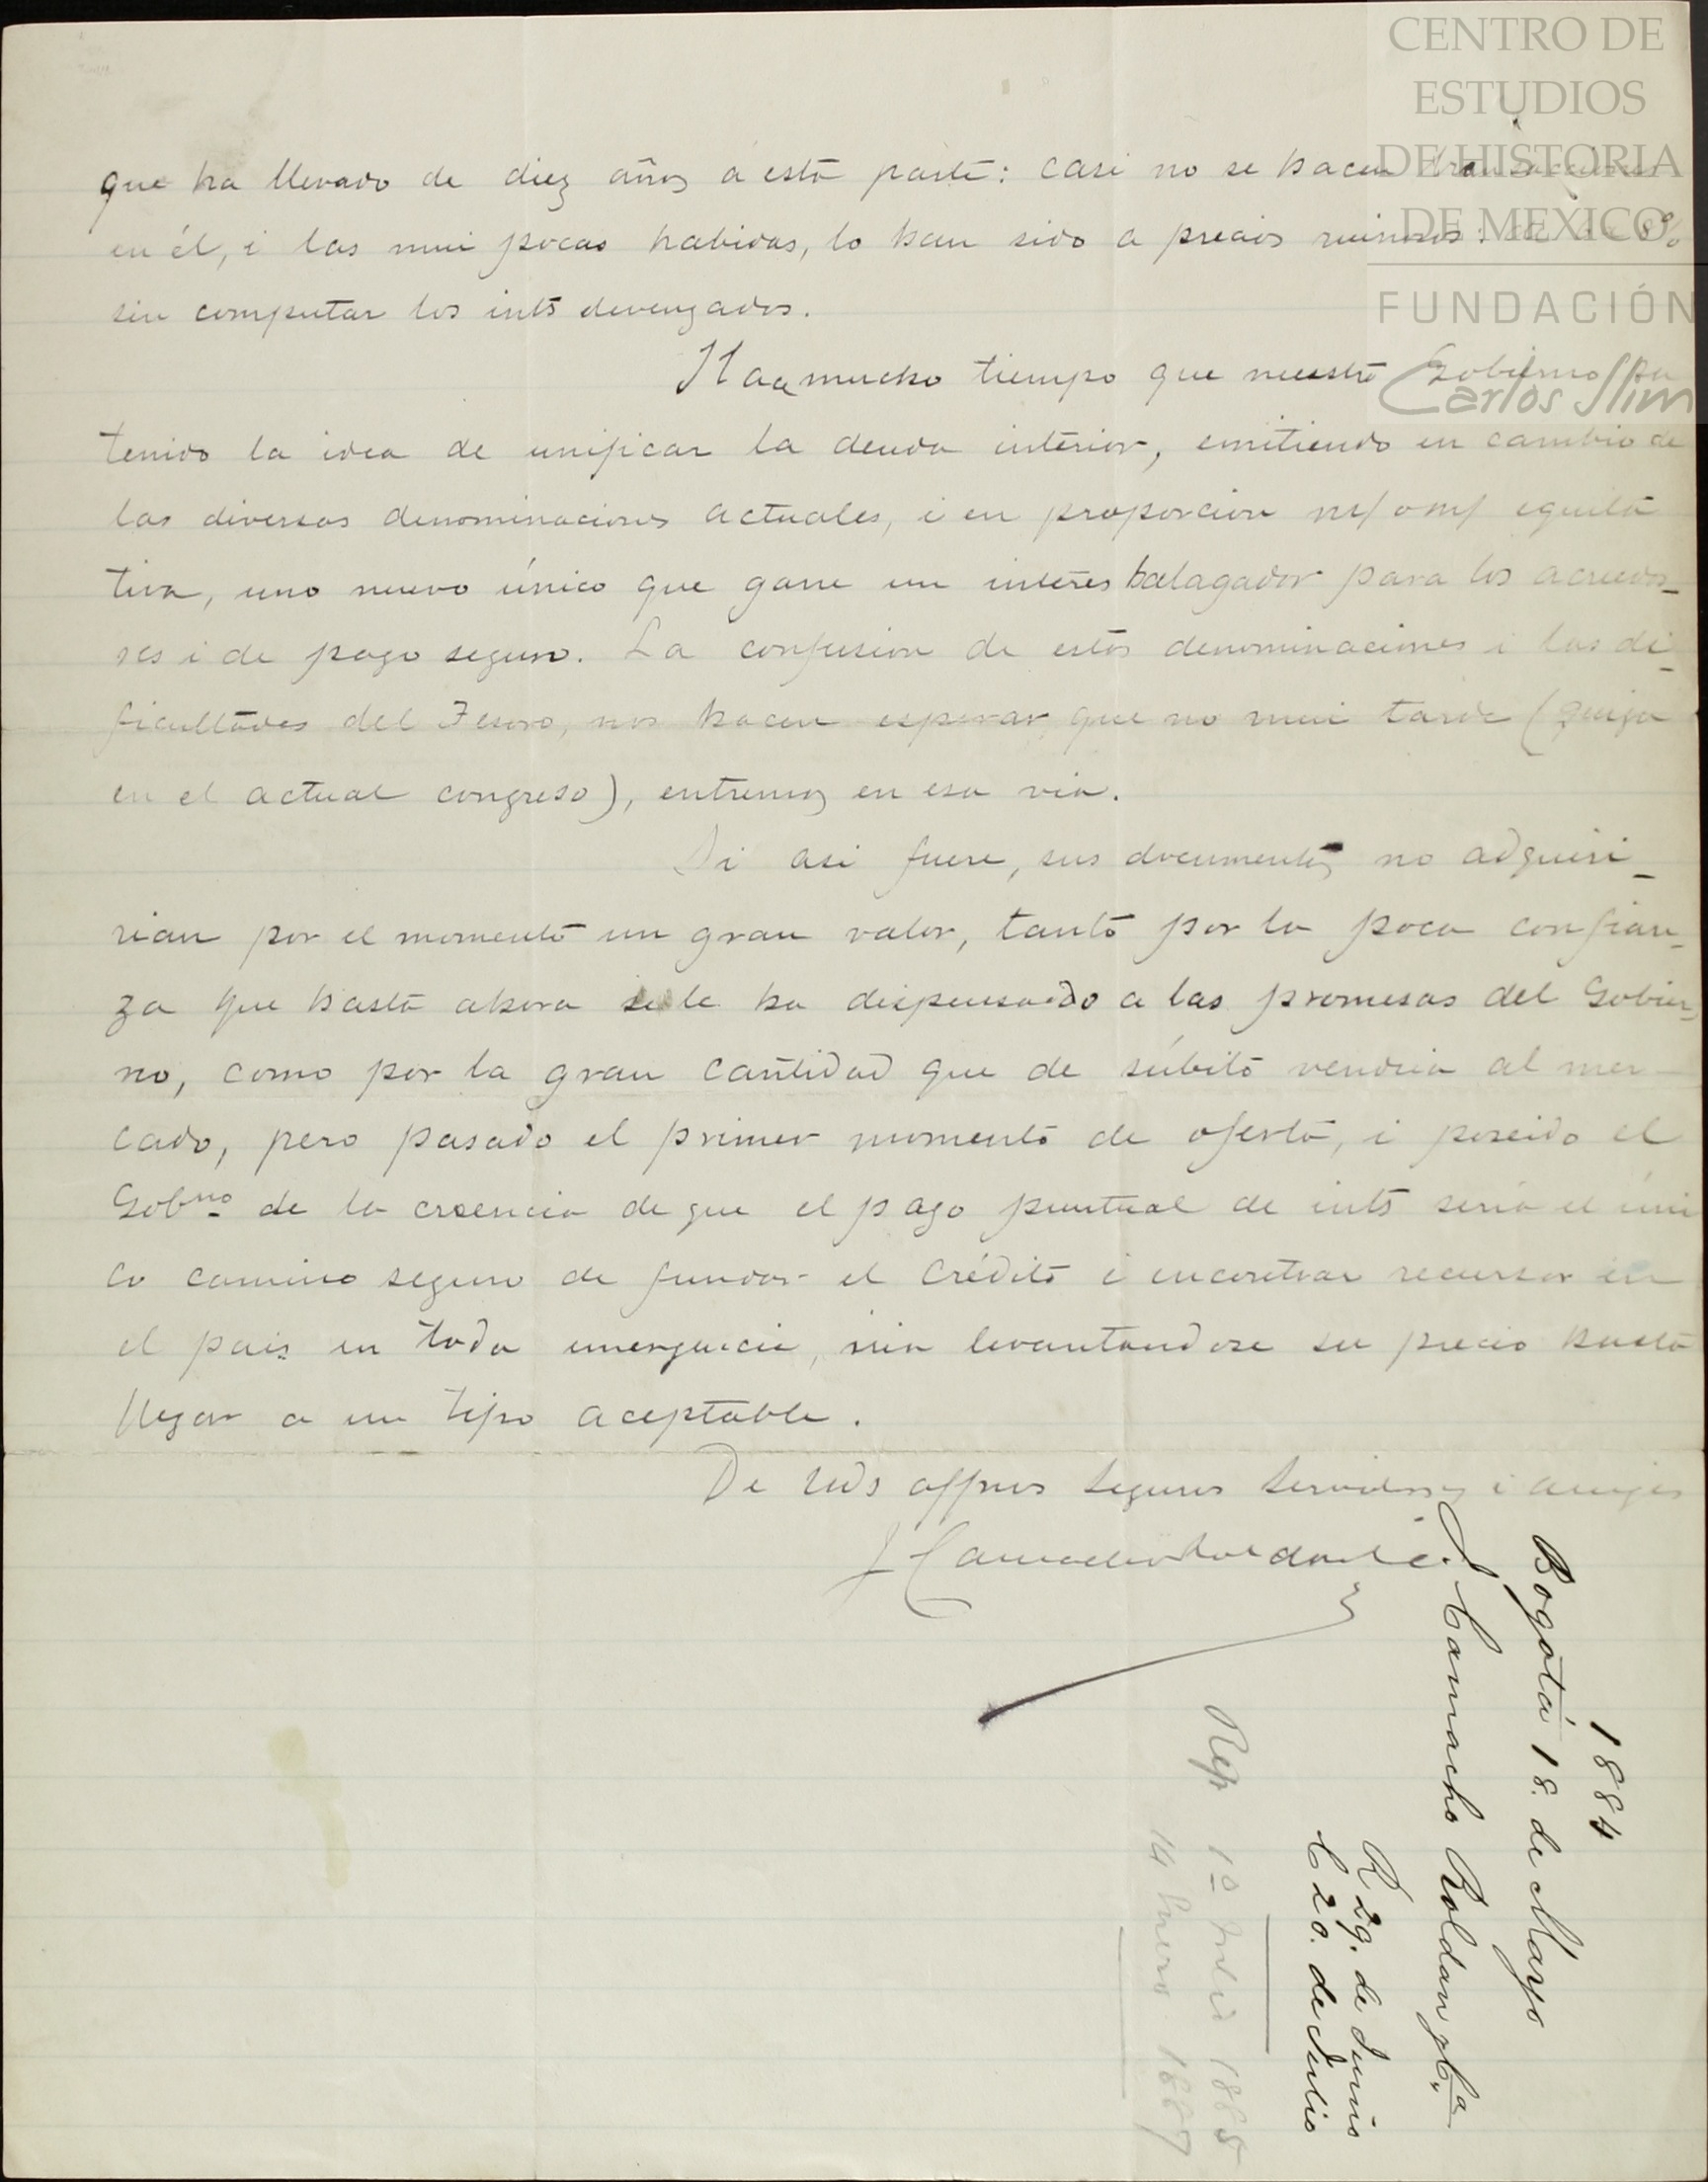 CENTRO DE
ESTUDIOS
DE HISTORIA
DE MEXICO
FUNDACIÓN
Carlos Slim
que ha llevado de diez años á esta parte: casi no se hacen transacciones
en él, i las mui pocas habidas, lo han sido a precios ruinosos: 8%
sin computar los ints devengados.
Hace mucho tiempo que nuestro Gobierno ha
tenido la idea de unificar la deuda interior, emitiendo en cambio de
las diversas denominaciones actuales, i en proporcion m/ o m/ equita
tiva, uno nuevo único que gane un interes halagador para los acreedo-
res i de pago seguro. La confusion de estas denominaciones i las di-
ficultades del Tesoro, nos hacen esperar que no mui tarde (quiza
en el actual congreso), entremos en esa via.
Si asi fuere, sus documentos no adquiri-
rian por el momento un gran valor, tanto por la poca confian-
za que hasta ahora se le ha dispensado a las promesas del Gobier-
no, como por la gran cantidad que de súbito vendria al mer-
cado, pero pasado el primer momento de oferta, i poseido el
Gobno de la creencia de que el pago puntual de ints seria el uni
co camino seguro de fundar el crédito i encontrar recursos en
el pais en toda emergencia, iria levantandose su precio hasta
llegar a un tipo aceptable.
De Uds affmos seguros servidores i amigos
1884
Bogotá 18. de Mayo
J. Camacho Roldan
R 29. de Junio
C 20. de Julio
Rep 1º Julio 1885
14 Enero 1887